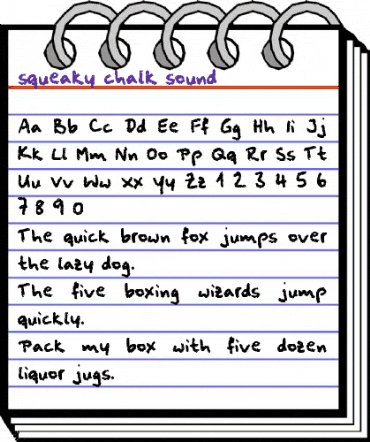 squeaky chalk sound
Aa Bb Cc Dd Ee Ff Gg Hh Ii Jj
Kk Ll Mm Nn Oo Pp Qq Rr Ss Tt
Uu Vv Ww Xx Yy Zz 1 2 3 4 5 6
7 8 9 0
The quick brown fox jumps over
the lazy dog.
The five boxing wizards jump
quickly.
Pack my box with five dozen
liquor jugs.